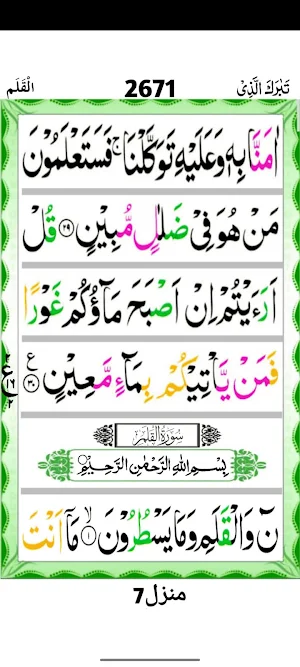 تَبٰرَكَ الَّذِیْ 2671 الْقَلَم
اٰمَنَّا بِهٖ وَعَلَیْهِ تَوَكَّلْنَا ۚ فَسَتَعْلَمُوْنَ
مَنْ هُوَ فِیْ ضَلٰلٍ مُّبِیْنٍ ﴿۲۹﴾ قُلْ
اَرَءَیْتُمْ اِنْ اَصْبَحَ مَآؤُكُمْ غَوْرًا
فَمَنْ یَّاْتِیْكُمْ بِمَآءٍ مَّعِیْنٍ ﴿۳۰﴾ ع
سُوْرَةُ الْقَلَمِ
بِسْمِ اللهِ الرَّحْمٰنِ الرَّحِیْمِ
نٓ وَالْقَلَمِ وَمَا یَسْطُرُوْنَ ﴿۱﴾ۙ مَاۤ اَنْتَ
منزل7